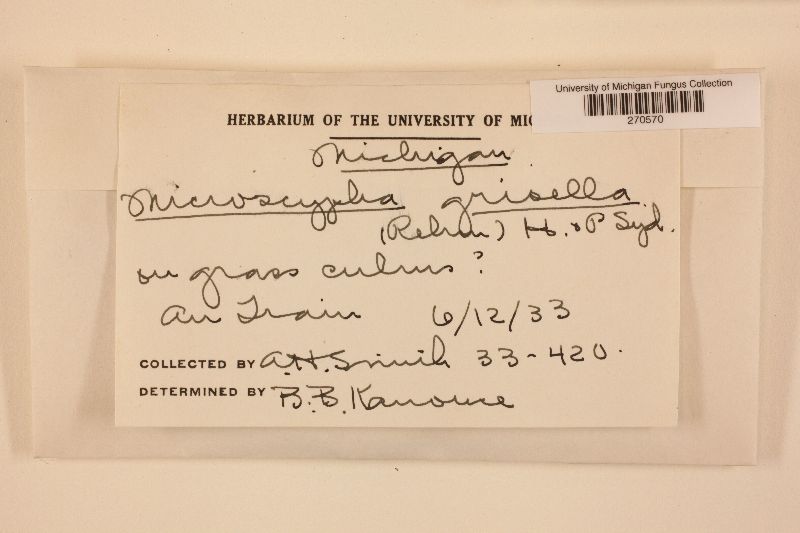 University of Michigan Fungus Collection
270570
HERBARIUM OF THE UNIVERSITY OF MIC
Michigan
Microscypha grisella
(Rehm) H. & P Syd.
on grass culms?
Au Train 6/12/33
COLLECTED BY A.H. Smith 33-420.
DETERMINED BY B.B. Kanouse